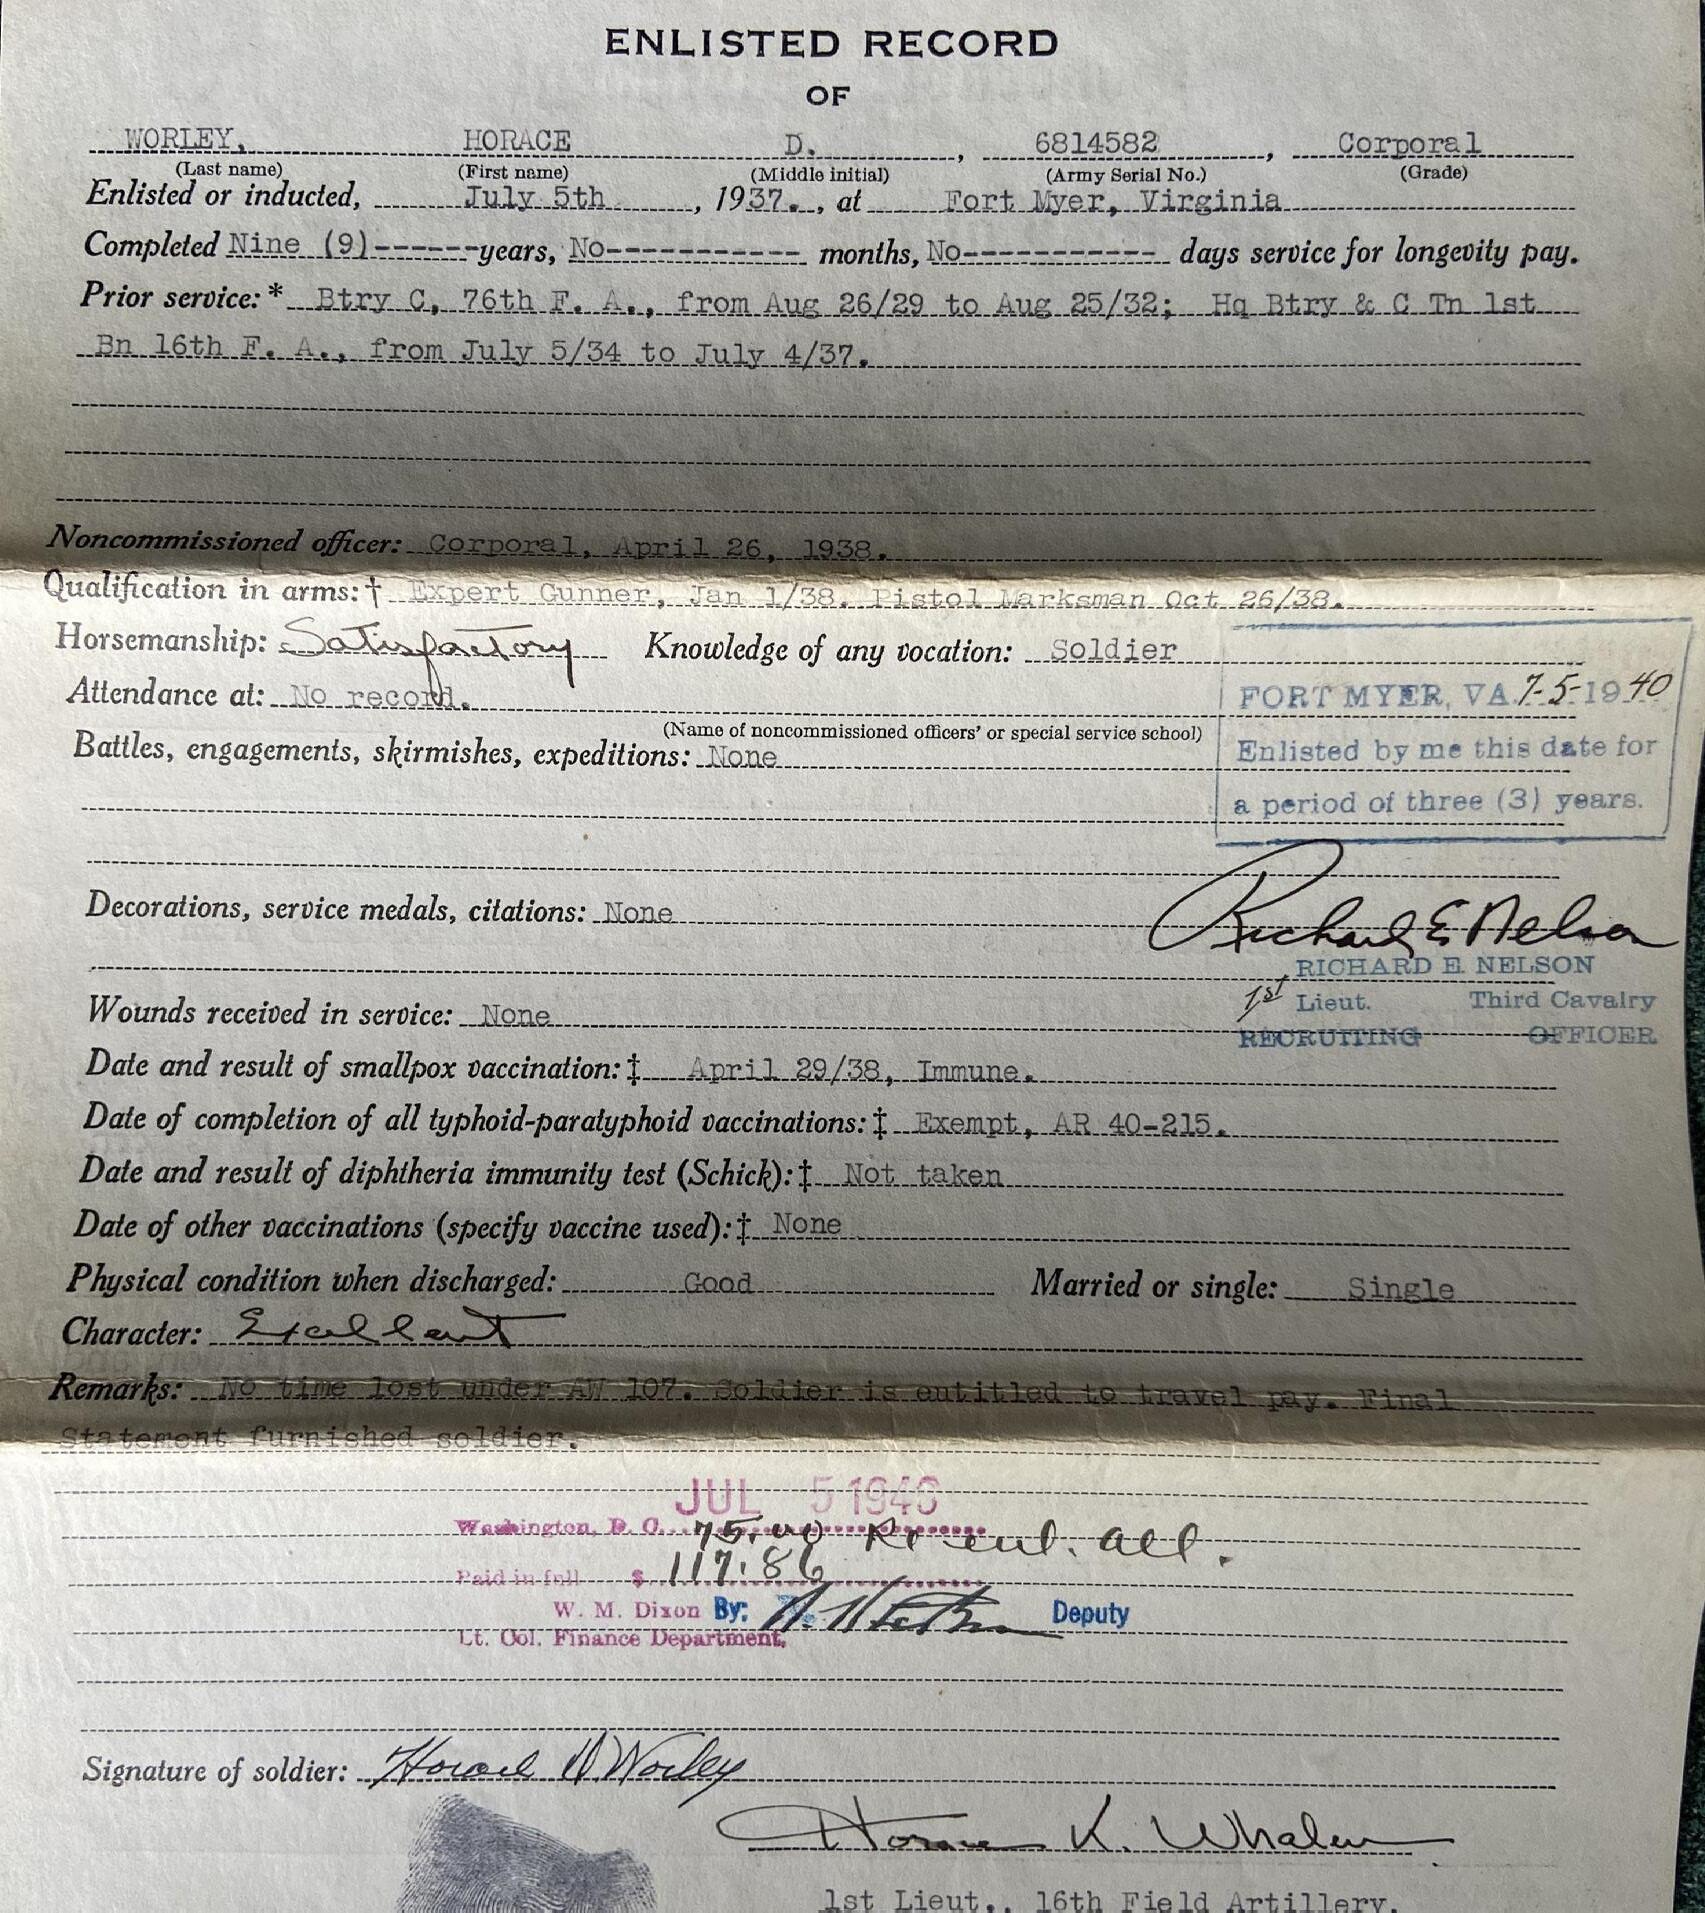 ENLISTED RECORD
OF
WORLEY, HORACE D. , 6814582 , Corporal
(Last name) (First name) (Middle initial) (Army Serial No.) (Grade)
Enlisted or inducted, July 5th , 1937. , at Fort Myer, Virginia
Completed Nine (9)------years, No----------- months, No----------- days service for longevity pay.
Prior service:* Btry C, 76th F. A., from Aug 26/29 to Aug 25/32; Hq Btry & C Tn 1st
Bn 16th F. A., from July 5/34 to July 4/37.
Noncommissioned officer: Corporal, April 26, 1938.
Qualification in arms:† Expert Gunner, Jan 1/38. Pistol Marksman Oct 26/38.
Horsemanship: Satisfactory Knowledge of any vocation: Soldier
Attendance at: No record.
(Name of noncommissioned officers' or special service school)
FORT MYER, VA. 7-5-1940
Enlisted by me this date for
a period of three (3) years.
Battles, engagements, skirmishes, expeditions: None
Decorations, service medals, citations: None
Richard E Nelson
RICHARD E. NELSON
1st Lieut. Third Cavalry
RECRUITING OFFICER
Wounds received in service: None
Date and result of smallpox vaccination:‡ April 29/38, Immune.
Date of completion of all typhoid-paratyphoid vaccinations:‡ Exempt, AR 40-215.
Date and result of diphtheria immunity test (Schick):‡ Not taken
Date of other vaccinations (specify vaccine used):‡ None
Physical condition when discharged: Good Married or single: Single
Character: Excellent
Remarks: No time lost under AW 107. Soldier is entitled to travel pay. Final
Statement furnished soldier.
JUL 5 1940
Washington, D. C. 75.00 Re enl. all.
Paid in full $ 117.86
W. M. Dixon By: Deputy
Lt. Col. Finance Department.
Signature of soldier: Horace D. Worley
Horace K. Whalen
1st Lieut., 16th Field Artillery.